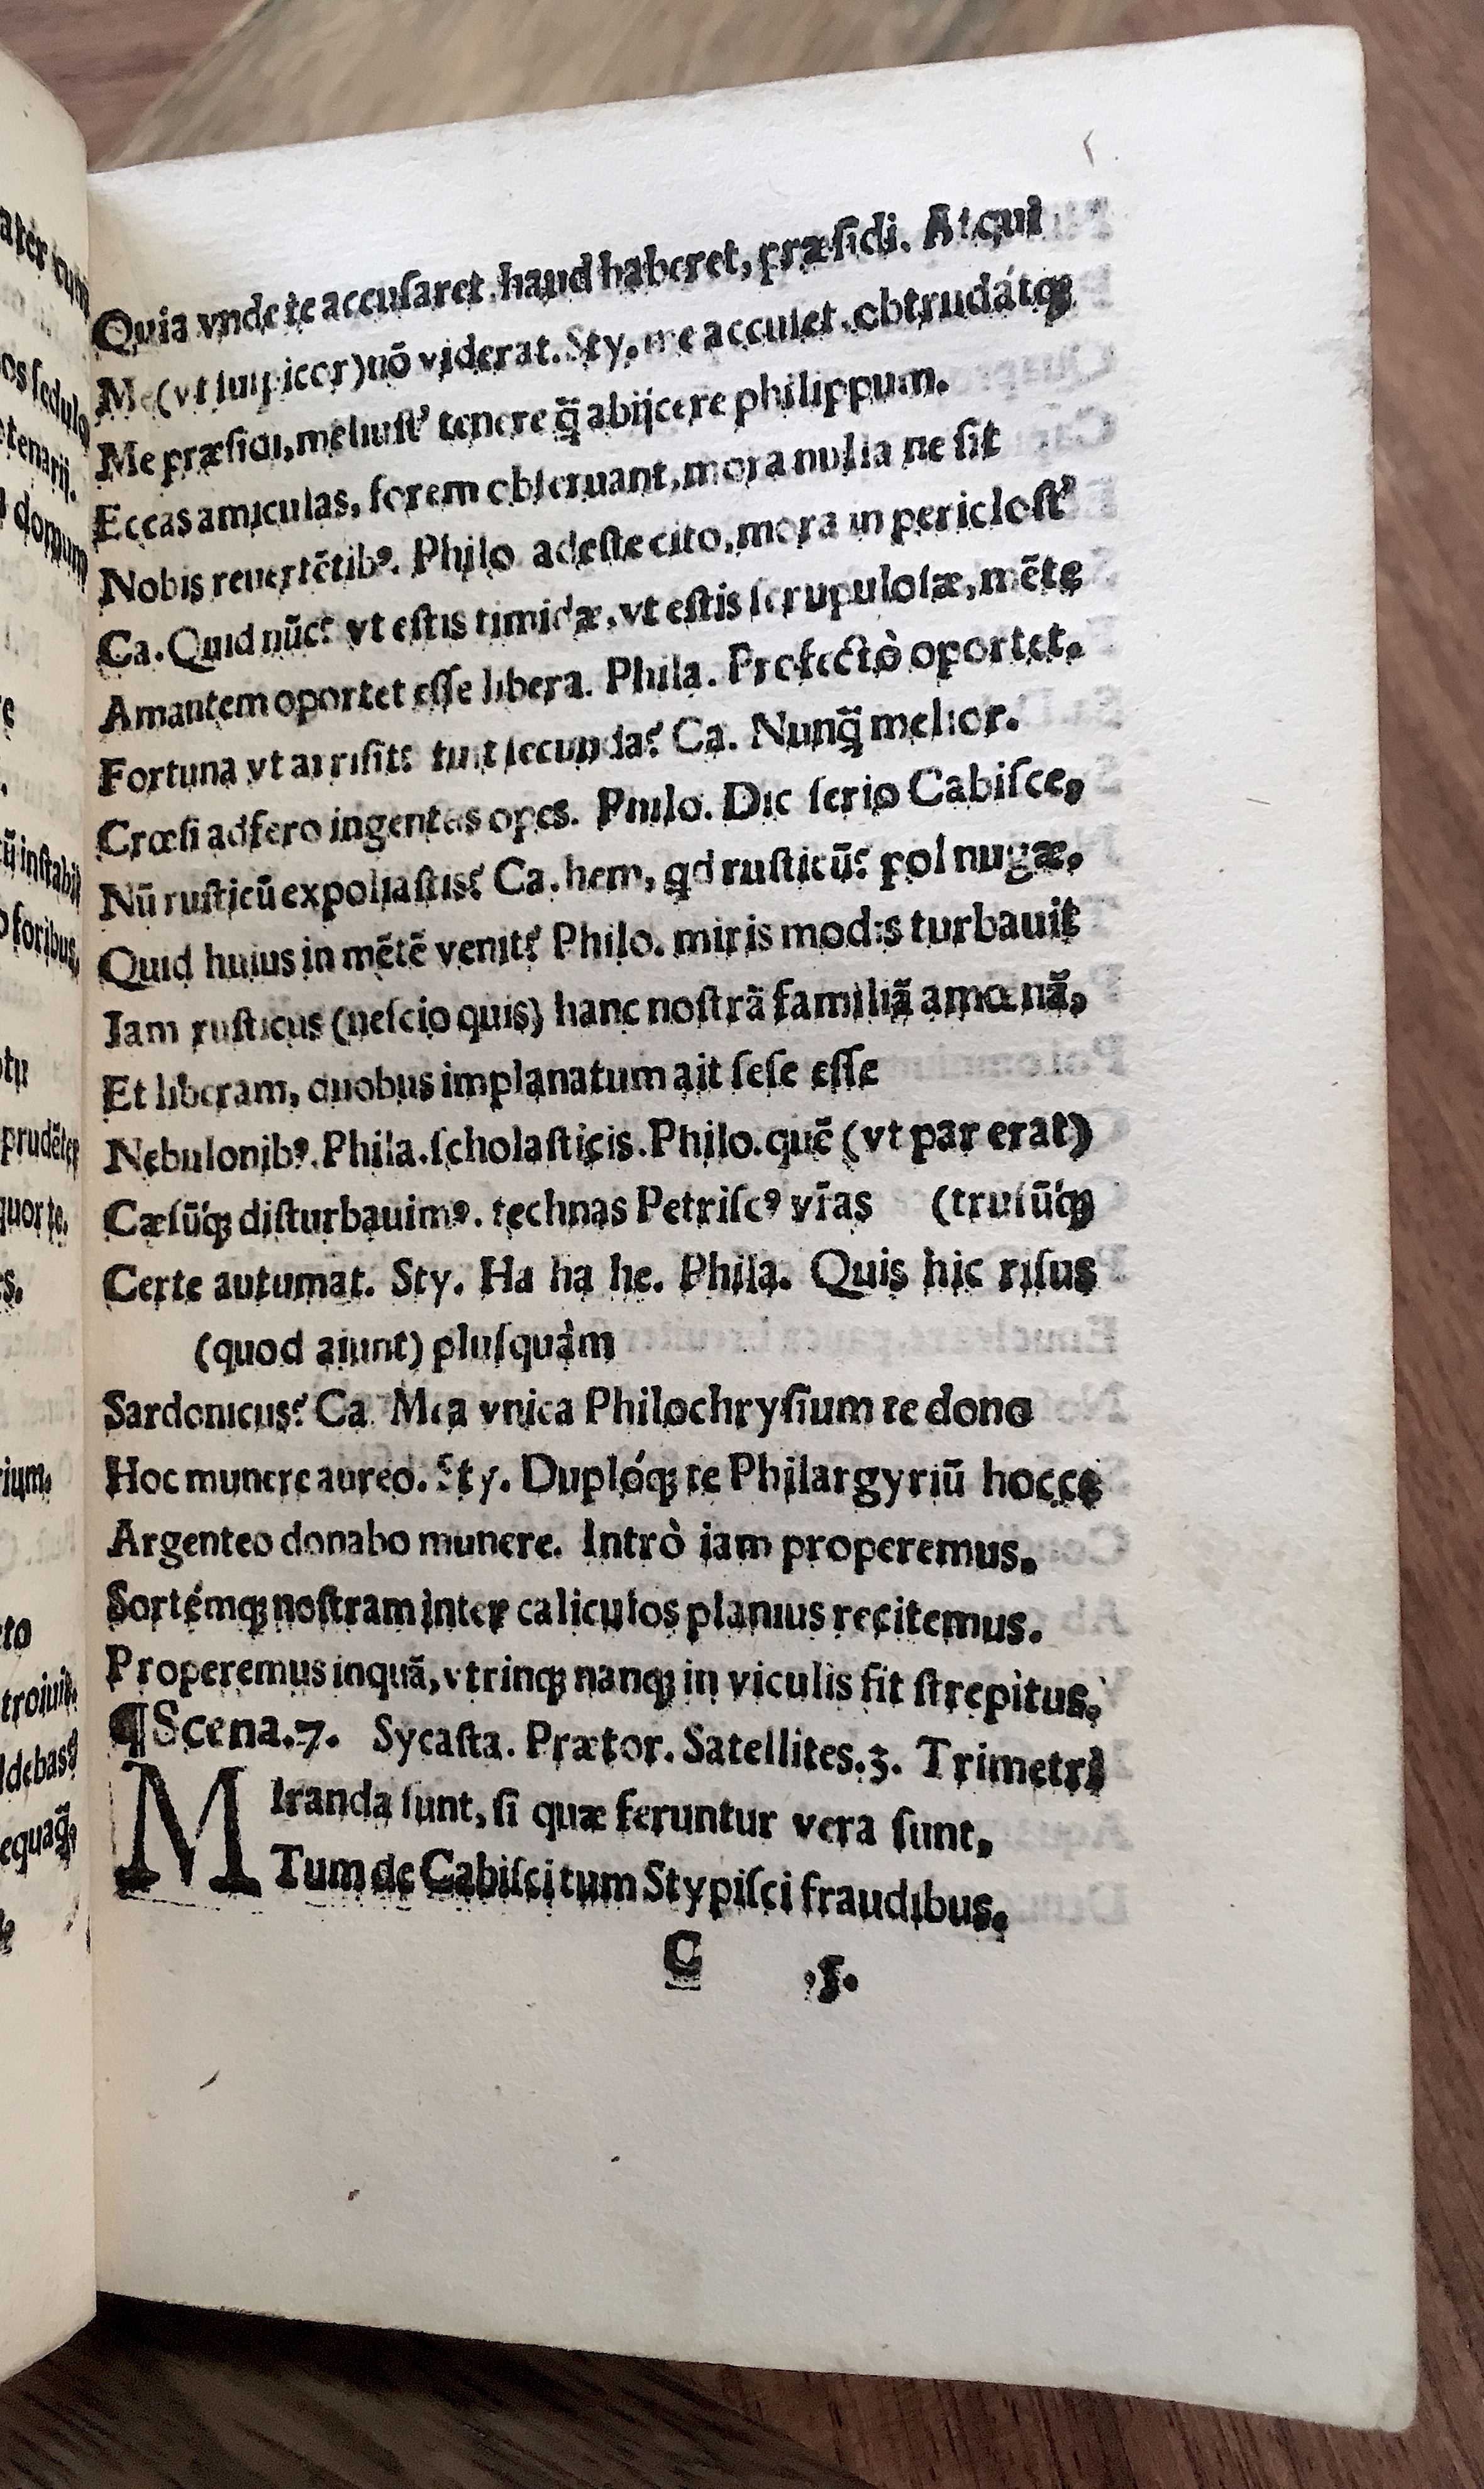 Quia vnde te accuſaret haud haberet, præſidi. Atqui
Me (vt ſuſpicor) nō viderat. Sty. me accuſet, obtrudátq́ꝫ
Me præſidi, meliuſt' tenere q̄̃ abijcere philippum.
Eccas amiculas, forem obſeruant, mora nulla ne ſit
Nobis reuertētibꝰ. Philo adeſte cito, mora in pericloſt'
Ca. Quid nūc? vt eſtis timidæ, vt eſtis ſcrupuloſæ, mēte
Amantem oportet eſſe libera. Phila. Profectò oportet.
Fortuna vt arriſit? fuit ſecunda? Ca. Nunq̄̃ melior.
Crœſi adfero ingentes opes. Philo. Dic ſerio Cabiſce,
Nū ruſticū expoliaſtis? Ca. hem, qd ruſticū? pol nugæ.
Quid huius in mētē venit? Philo. miris modis turbauit
Iam ruſticus (neſcio quis) hanc noſtrā familiā amœnā,
Et liberam, duobus implanatum ait ſeſe eſſe
Nebulonibꝰ. Phila. ſcholaſticis. Philo. quē (vt par erat)
Cæſū́qꝫ diſturbauimꝰ. technas Petriſcꝰ vr̄as (truſū́qꝫ
Certe autumat. Sty. Ha ha he. Phila. Quis hic riſus
(quod aiunt) pluſquàm
Sardonicus? Ca Mea vnica Philochryſium te dono
Hoc munere aureo. Sty. Duplóqꝫ te Philargyriū hocce
Argenteo donabo munere. Intrò iam properemus.
Sortémqꝫ noſtram inter caliculos planius recitemus.
Properemus inquā, vtrinqꝫ nanqꝫ in viculis fit ſtrepitus.
¶Scena.7. Sycaſta. Prætor. Satellites.3. Trimetri
MIranda ſunt, ſi quæ feruntur vera ſunt,
Tum de Cabiſci tum Stypiſci fraudibus.
C .5.